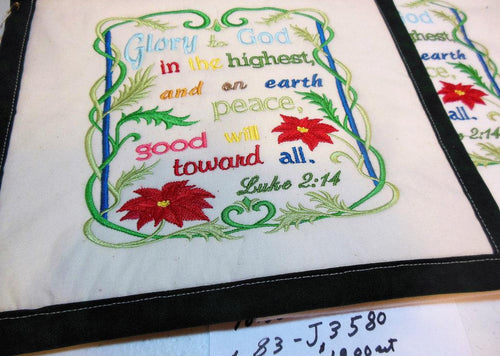 Glory to God
in the highest,
and on earth
peace,
good will
toward all.
Luke 2:14
highest,
earth
all.
2:14
83-J, 3580